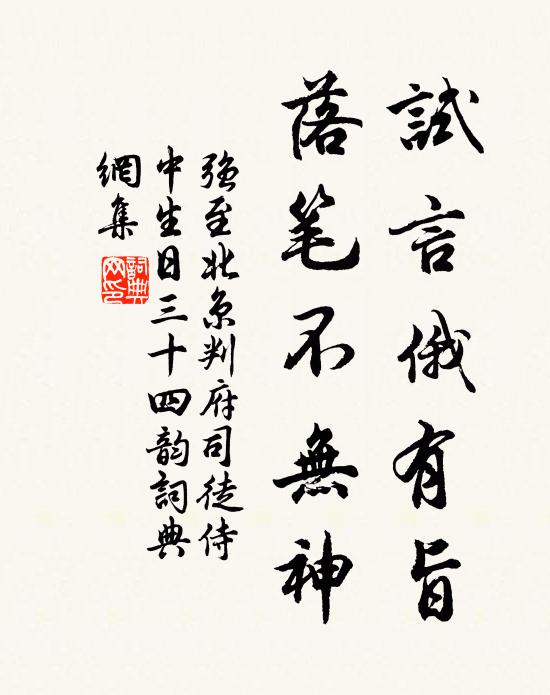 試言俄有旨
落笔不無神
强至北京判府司徒侍
中生日三十四韵詞典
網集
詞典
网印